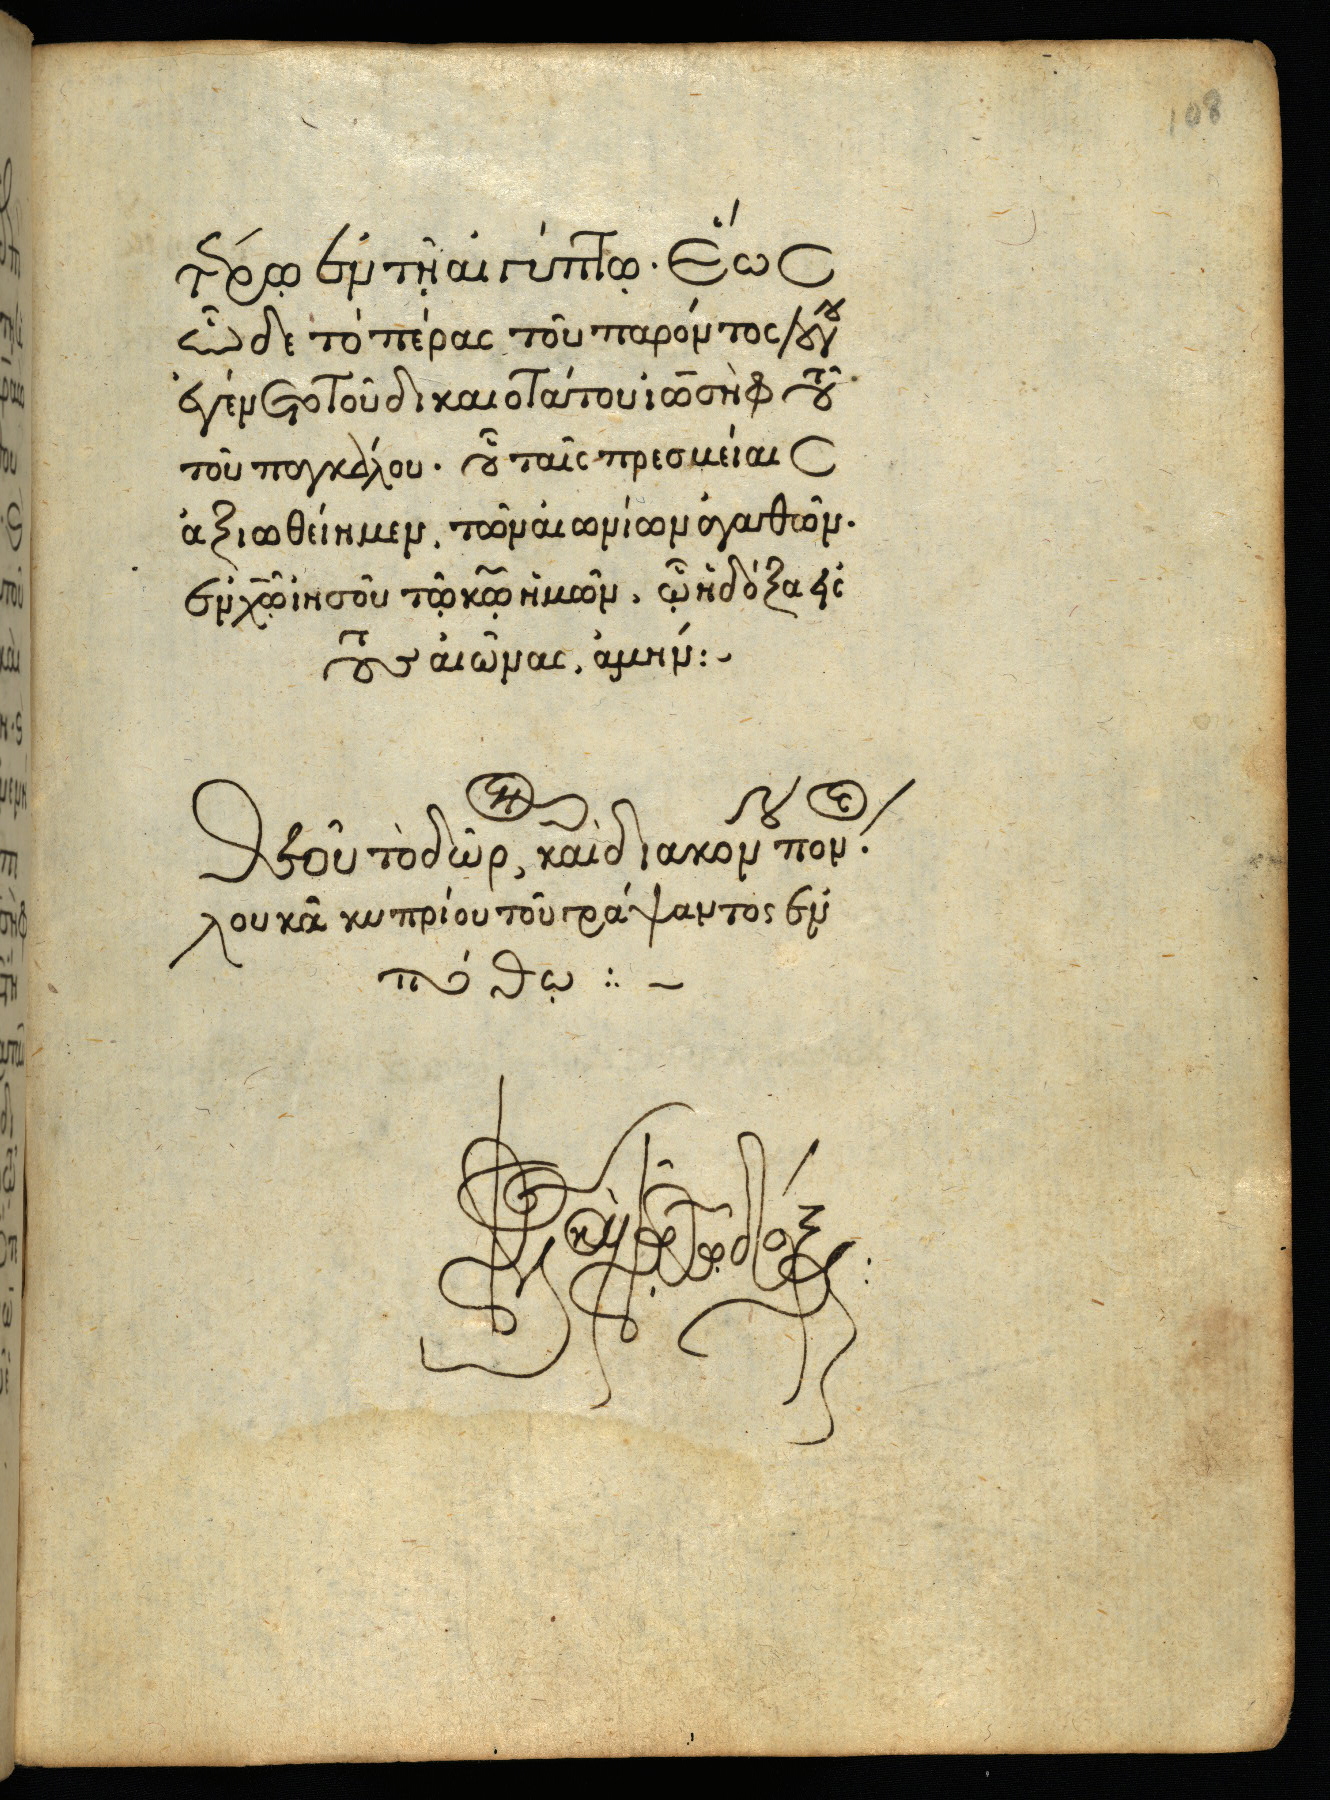 108
σόρῳ ἐν τῇ αἰγύπτῳ· Ἕως
ὧδε τὸ πέρας τοῦ παρόντος λόγου
ἐγένετο τοῦ δικαιοτάτου ἰωσὴφ
τοῦ παγκάλου· οὗ ταῖς πρεσβείαις
ἀξιωθείημεν, τῶν αἰωνίων ἀγαθῶν.
ἐν χῷ ἰησοῦ τῷ κῷ ἡμῶν, ᾧ ἡ δόξα εἰς
τοὺς αἰῶνας, ἀμήν:~
Θεοῦ τὸ δῶρον, καὶ διακόνου πόνος
λουκᾶ κυπρίου τοῦ γράψαντος ἐν
πόθῳ :~